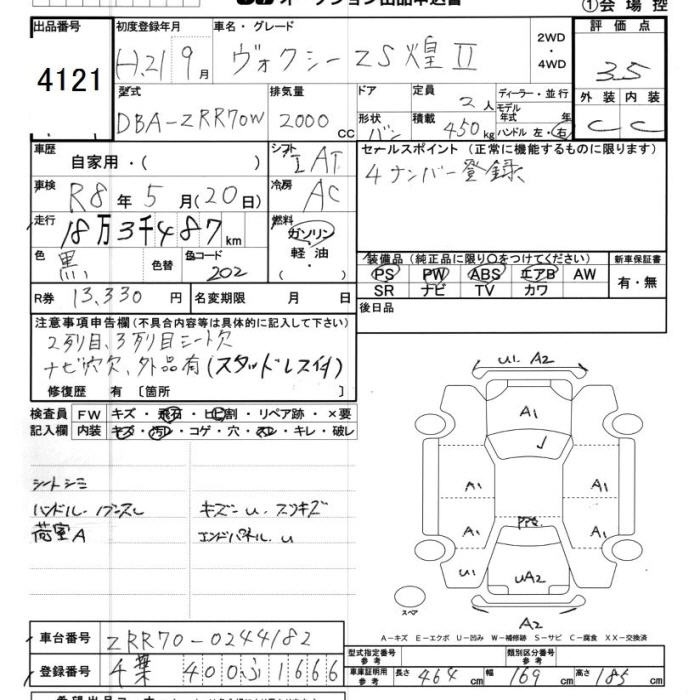 オークション出品申込書
①会場控
出品番号 初度登録年月 車名・グレード 2WD ・ 4WD 評価点
4121 H.21 9月 ヴォクシー ZS煌II 3.5
型式 排気量 ドア 定員 2人 ディーラー・並行 外装 内装
DBA-ZRR70W 2000cc 形状 バン 積載 450kg モデル年式 年 ハンドル 左・右 C C
車歴 自家用・( ) シフト IAT セールスポイント (正常に機能するものに限ります)
4ナンバー登録
車検 R8年5月(20日) 冷房 AC
走行 18万3千487km 燃料 ガソリン 軽油 ・ ( )
色 黒 色替 色コード 202
装備品(純正品に限り〇をつけてください) 新車保証書
PS PW ABS エアB AW 有・無
SR ナビ TV カワ
R券 13,330円 名変期限 月 日 後日品
注意事項申告欄(不具合内容等は具体的に記入して下さい)
2列目、3列目シート欠
ナビ穴欠、外品有(スタッドレス付)
修復歴 有 〔箇所 〕
検査員 FW キズ・飛石・ヒビ割・リペア跡・×要
記入欄 内装 キズ・汚レ・コゲ・穴・スレ・キレ・破レ
シートシミ
ハンドル・ノブスレ キズン u. スリキズ
荷室A エンドパネル. u
u1. A2
A1
A1 A1
A1 A1
u1 uA2
スペア
A2
A-キズ E-エクボ U-凹み W-補修跡 S-サビ C-腐食 XX-交換済
車台番号 ZRR70-0244182
型式指定番号 参考 類別区分番号 参考
登録番号 千葉 400 ふ 1666
車庫証明用 参考 長さ 464cm 幅 169cm 高さ 185cm